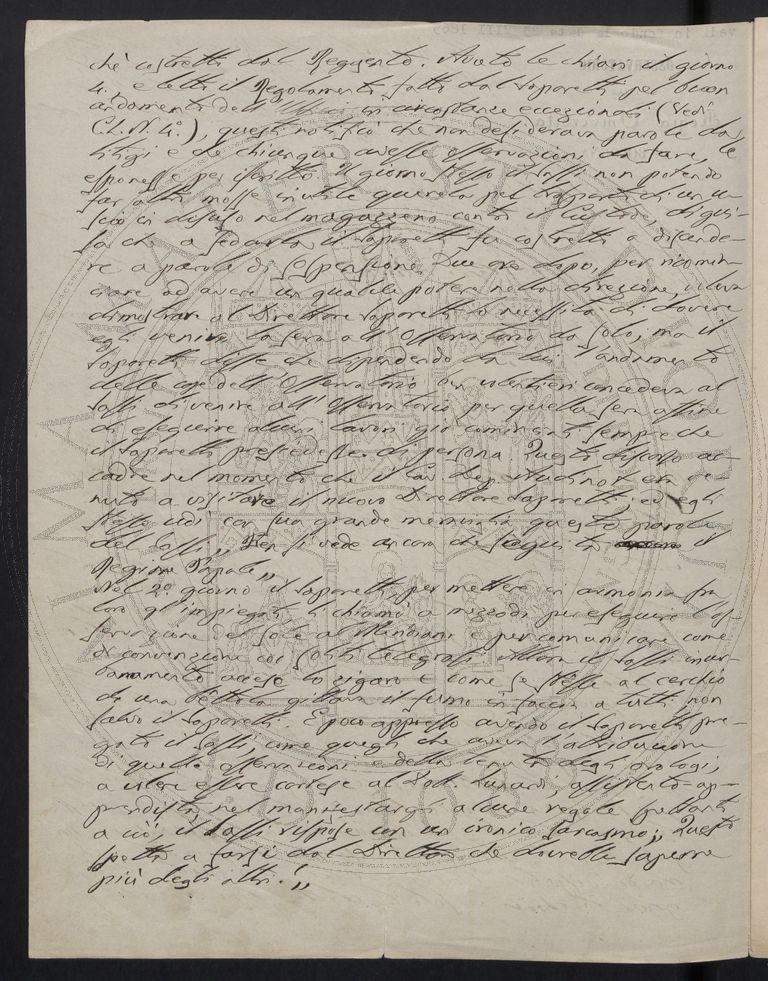 chè costretto dal Reggente. Avuto le chiavi il giorno
4., e letto il Regolamento fatto dal Saporetti pel buon
andamento dell' in circostanze eccezionali (Vedi
N. 4º.), questi notificò che non desiderava parole da
litigi e che chiunque avesse osservazioni da fare, le
esponesse per iscritto. Il giorno stesso il Sassi non potendo
far altro mosse inutile querela pel trasporto di un
in disuso nel magazzeno contro il custode, di gui-
sa che a sedarla il Saporetti fu costretto a discende-
re a parole di sospensione. Due ore dopo, per ricomin-
ciare ad avere un qualche potere nella direzione, voleva
dimostrare al Direttore Saporetti la necessità di dovere
egli venire la sera all' Osservatorio da solo, ma il
Saporetti disse che dipendendo da lui l'andamento
delle cose dell' Osservatorio ben volentieri concedeva al
Sassi di venire all' Osservatorio per quella sera affine
di eseguire alcuni lavori già cominciati sempre che
il Saporetti presiedesse di persona. Questo discorso ac-
cadde nel momento che il era ve-
nuto a visitare il nuovo Direttore Saporetti, ed egli
stesso udì con sua grande meraviglia queste parole
del Sassi „ Ben si vede ancora che seguita il
Regime Papale „
Nel 2º. giorno il Saporetti per mettere in armonia fra
loro gl' impiegati li chiamò a mezzodì per eseguire l'os-
servazione del sole al Meridiano e per comunicare come
di convenzione coi soliti telegrafi. Allora il Sassi inur-
banamente acceso lo zigaro e come se stesse al cerchio
di una bettola gittava il fumo in faccia a tutti non
salvo il Saporetti. E poco appresso avendo il Saporetti pre-
gato il Sassi, come quegli che aveva l'attribuzione
di quelle osservazioni e della tenuta degli orologi,
a volere essere cortese al Dott. assistente ap-
prendista nel manifestargli alcune regole spettanti
a ciò, il Sassi rispose con un ironico sarcasmo „ Questo
spetta a farsi dal Direttore che dovrebbe saperne
più degli altri. „